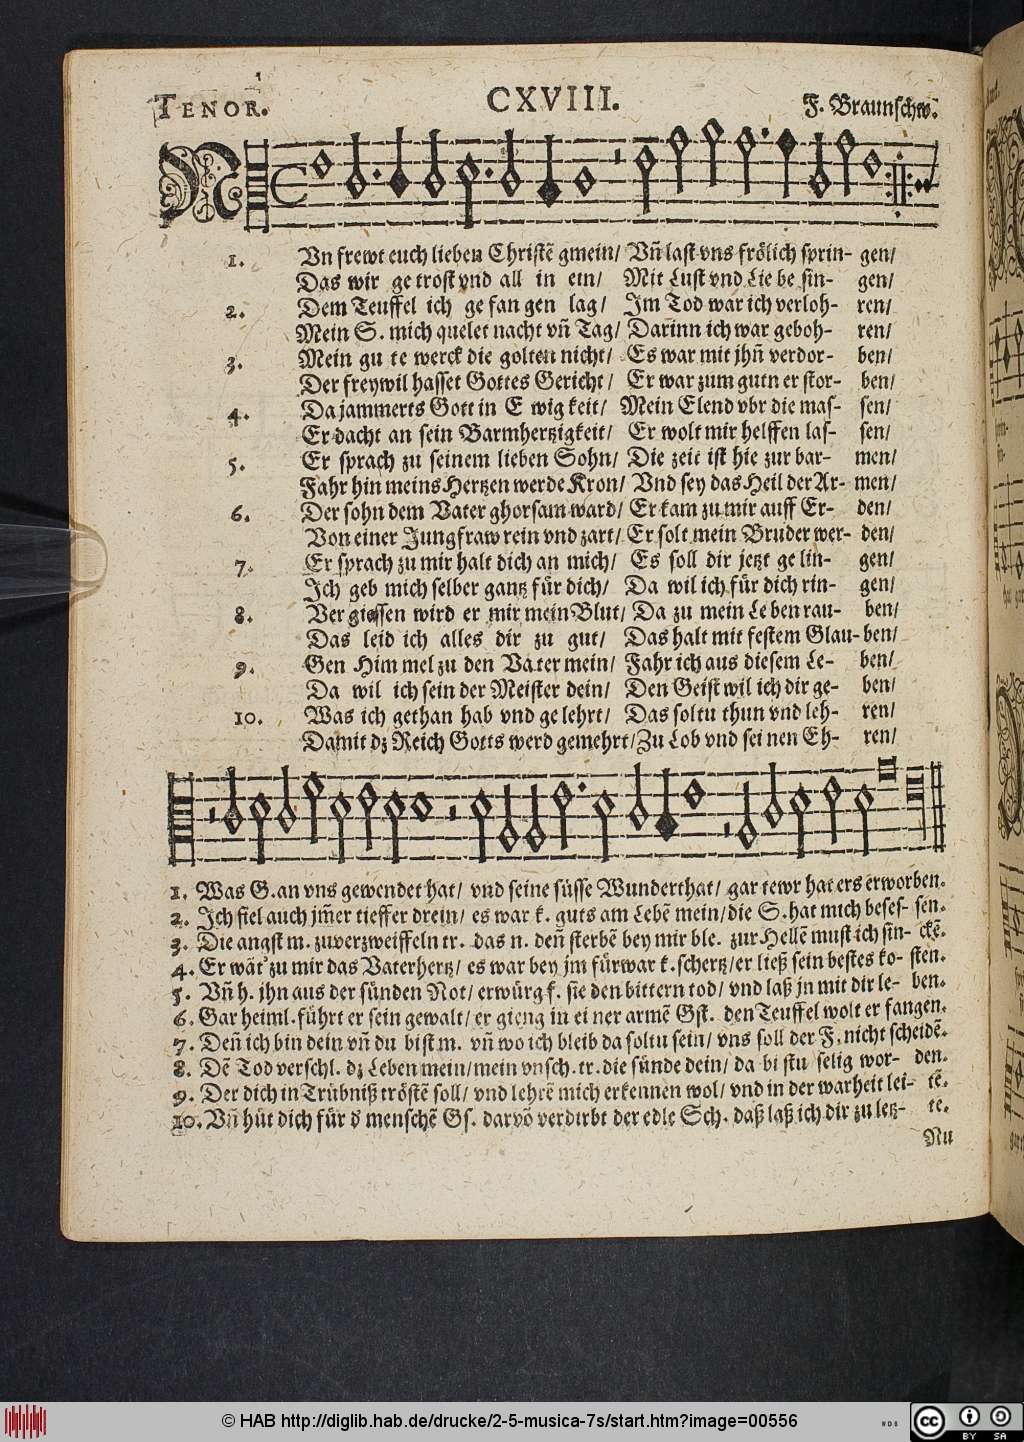 TENOR.
CXVIII.
F. Braunschw.
NVn frewt euch lieben Christẽ gmein/ Vñ last vns frölich sprin- gen/
1. Das wir ge trost vnd all in ein/ Mit Lust vnd Lie be sin- gen/
Dem Teuffel ich ge fan gen lag/ Im Tod war ich verloh- ren/
2. Mein S. mich quelet nacht vñ Tag/ Darinn ich war geboh- ren/
Mein gu te werck die golten nicht/ Es war mit jhñ verdor- ben/
3. Der freywil hasset Gottes Gericht/ Er war zum gutn er stor- ben/
Da jammerts Gott in E wig keit/ Mein Elend vbr die mas- sen/
4. Er dacht an sein Barmhertzigkeit/ Er wolt mir helffen las- sen/
Er sprach zu seinem lieben Sohn/ Die zeit ist hie zur bar- men/
5. Fahr hin meins Hertzen werde Kron/ Vnd sey das Heil der Ar- men/
Der sohn dem Vater ghorsam ward/ Er kam zu mir auff Er- den/
6. Von einer Jungfraw rein vnd zart/ Er solt mein Bruder wer- den/
Er sprach zu mir halt dich an mich/ Es soll dir jetzt ge lin- gen/
7. Ich geb mich selber gantz für dich/ Da wil ich für dich rin- gen/
Ver giessen wird er mir mein Blut/ Da zu mein Le ben rau- ben/
8. Das leid ich alles dir zu gut/ Das halt mit festem Glau- ben/
Gen Him mel zu den Va ter mein/ Fahr ich aus diesem Le- ben/
9. Da wil ich sein der Meister dein/ Den Geist wil ich dir ge- ben/
Was ich gethan hab vnd ge lehrt/ Das soltu thun vnd leh- ren/
10. Damit dz Reich Gotts werd gemehrt/ Zu Lob vnd sei nen Eh- ren/
1. Was G. an vns gewendet hat/ vnd seine süsse Wunderthat/ gar tewr hat ers erworben.
2. Ich fiel auch jm̃er tieffer drein/ es war k. guts am Lebẽ mein/ die S. hat mich beses- sen.
3. Die angst m. zuverzweiffeln tr. das n. deñ sterbẽ bey mir ble. zur Hellẽ must ich sin- ckẽ.
4. Er wãt zu mir das Vaterhertz/ es war bey jm fürwar k. schertz/ er ließ sein bestes ko- sten.
5. Vñ h. jhn aus der sünden Not/ erwürg f. sie den bittern tod/ vnd laß jn mit dir le- ben.
6. Gar heiml. führt er sein gewalt/ er gieng in ei ner armẽ Gst. den Teuffel wolt er fangen.
7. Deñ ich bin dein vñ du bist m. vñ wo ich bleib da soltu sein/ vns soll der F. nicht scheidẽ.
8. Dẽ Tod verschl. dz Leben mein/ mein vnsch. tr. die sünde dein/ da bi stu selig wor- den.
9. Der dich in Trübniß tröstẽ soll/ vnd lehrẽ mich erkennen wol/ vnd in der warheit lei- tẽ.
10. Vñ hüt dich für d' menschẽ Gs. darvõ verdirbt der edle Sch. daß laß ich dir zu letz- te.
Nu
© HAB http://diglib.hab.de/drucke/2-5-musica-7s/start.htm?image=00556
cc BY SA